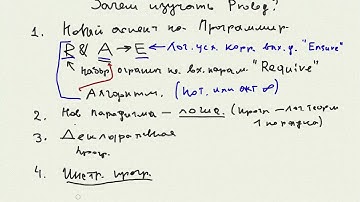 Зачем изучать Prolog?
1. Новый аспект на Программир.
R & A → E ← Лог. усл. корр. вых. д. "Ensure"
набор огранич на вх. парам. "Require"
Алгоритм. (пот. или акт ∞)
2. Нов парадигма – логич. (прогр – лог теория
1 порядка)
3. Декларативная
прогр.
4. Инстр прогр.